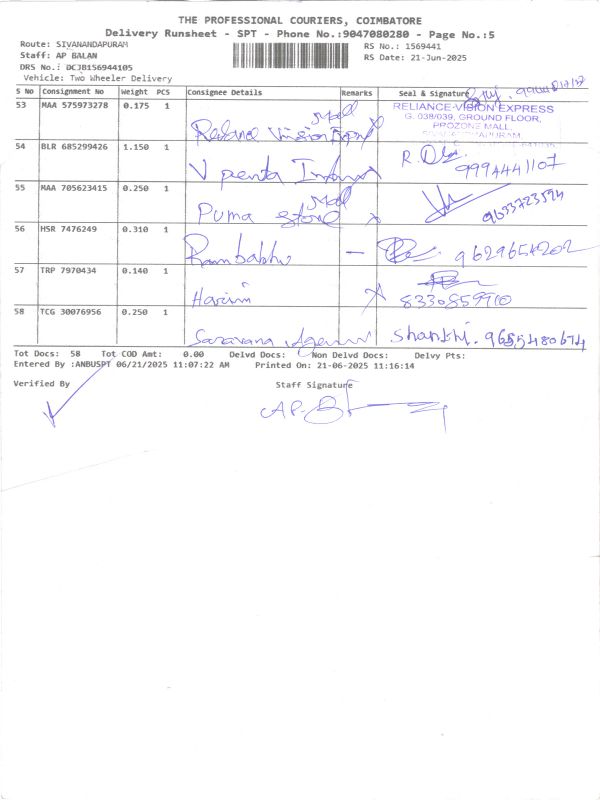 THE PROFESSIONAL COURIERS, COIMBATORE
Delivery Runsheet - SPT - Phone No.:9047080280 - Page No.:5
Route: SIVANANDAPURAM
RS No.: 1569441
Staff: AP BALAN
RS Date: 21-Jun-2025
DRS No.: DCJB156944105
Vehicle: Two Wheeler Delivery
S No Consignment No Weight PCS Consignee Details Remarks Seal & Signature
53 MAA 575973278 0.175 1 Reliance Vision Mall
RELIANCE-VISION EXPRESS
G. 038/039, GROUND FLOOR,
PROZONE MALL,
54 BLR 685299426 1.150 1 V 9994441107
55 MAA 705623415 0.250 1 Puma Store Mall 9633723594
56 HSR 7476249 0.310 1 Rambabhu - 9629654202
57 TRP 7970434 0.140 1 Harini 8330859910
58 TCG 30076956 0.250 1 Saravana Shanthi. 9655480674
Tot Docs: 58 Tot COD Amt: 0.00 Delvd Docs: Non Delvd Docs: Delvy Pts:
Entered By :ANBUSPT 06/21/2025 11:07:22 AM Printed On: 21-06-2025 11:16:14
Verified By Staff Signature
AP-B